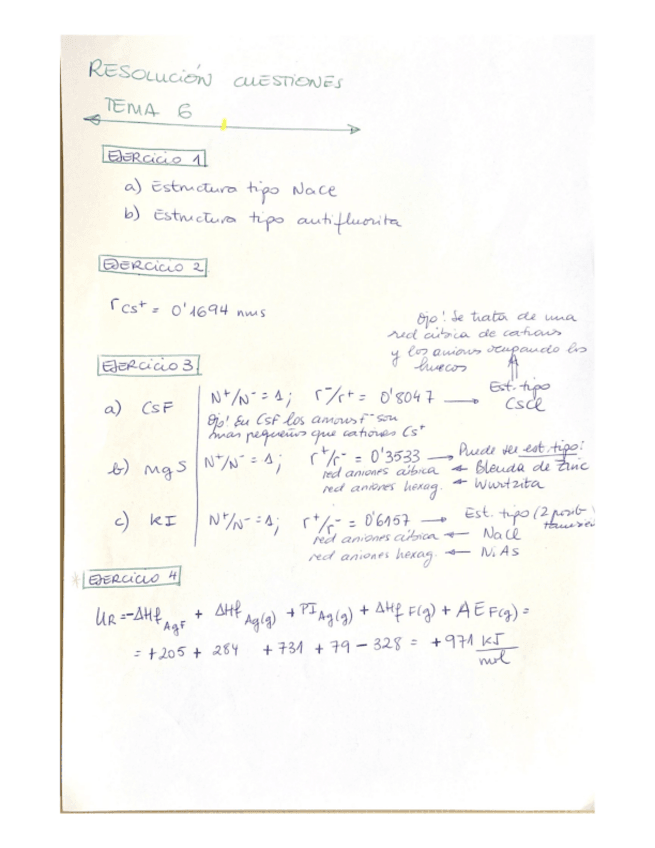 RESOLUCIÓN CUESTIONES
TEMA 6
EJERCICIO 1
a) Estructura tipo NaCl
b) Estructura tipo antifluorita
EJERCICIO 2
rCs+ = 0'1694 nms
Ojo! Se trata de una
red cúbica de cationes
y los aniones ocupando los
huecos
EJERCICIO 3
a) CsF N+/N- = 1; r-/r+ = 0'8047 → Est. tipo CsCl
Ojo! En CsF los aniones F- son
mas pequeños que cationes Cs+
b) MgS N+/N- = 1; r+/r- = 0'3533 → Puede ser est. tipo:
red aniones cúbica ← Blenda de Zinc
red aniones hexag. ← Wurtzita
c) KI N+/N- = 1; r+/r- = 0'6157 → Est. tipo (2 posib
red aniones cúbica ← NaCl
red aniones hexag. ← NiAs
* EJERCICIO 4
UR = -ΔHf AgF + ΔHf Ag(g) + PI Ag(g) + ΔHf F(g) + AE F(g) =
= +205 + 284 + 731 + 79 - 328 = +971 kJ/mol